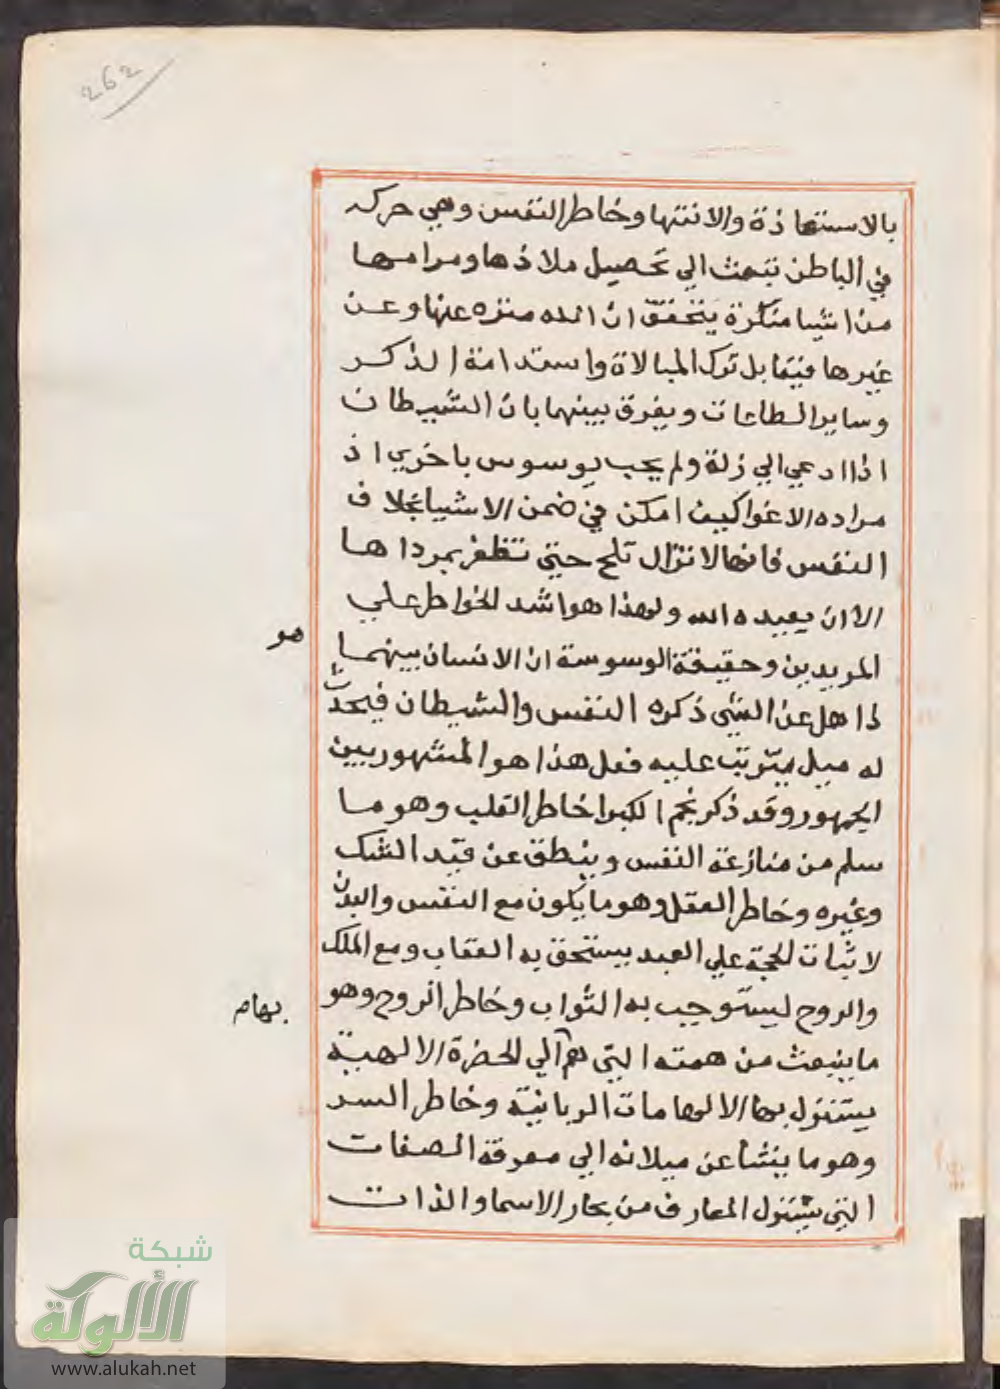 262
بالاستعاذة والانتها وخاطر النفس وهي حركه
في الباطن تبعث الي تحصيل ملاذها ومرامها
من اشيا منكرة يتحقق ان الله منزه عنها وعن
غيرها فيقابل بترك المبالاة واستدامة الذكر
وساير الطاعات ويفرق بينهما بان الشيطان
اذا ادعي الي زلة ولم يجب يوسوس باخري اذ
مراده الاغوا كيف امكن في ضمن الاشيا بخلاف
النفس فانها لا تزال تلح حتي تظفر بمرداها
الا ان يعيده الله ولهذا هو اشد الخواطر علي
المريدين وحقيقة الوسوسة ان الانسان بينهما
هو
ذاهل عن الشي ذكره النفس والشيطان فيحدث
له ميل يترتب عليه فعل هذا هو المشهور بين
الجمهور وقد ذكر نجم الكبرا خاطر القلب وهو ما
سلم من منازعة النفس وينطق عن قيد الشك
وغيره وخاطر العقل وهو ما يكون مع النفس والبدن
لاثبات الحجة علي العبد يستحق به العقاب ومع الملك
والروح ليستوجب به الثواب وخاطر الروح وهو
بهام
ما ينبعث من همته التي هم الي الحضرة الالهية
يستنزل بها الالهامات الربانية وخاطر السر
وهو ما ينشا عن ميلانه الي معرفة الصفات
التي يتنزل المعارف من بحار الاسما والذات
شبكة
الألوكة
www.alukah.net